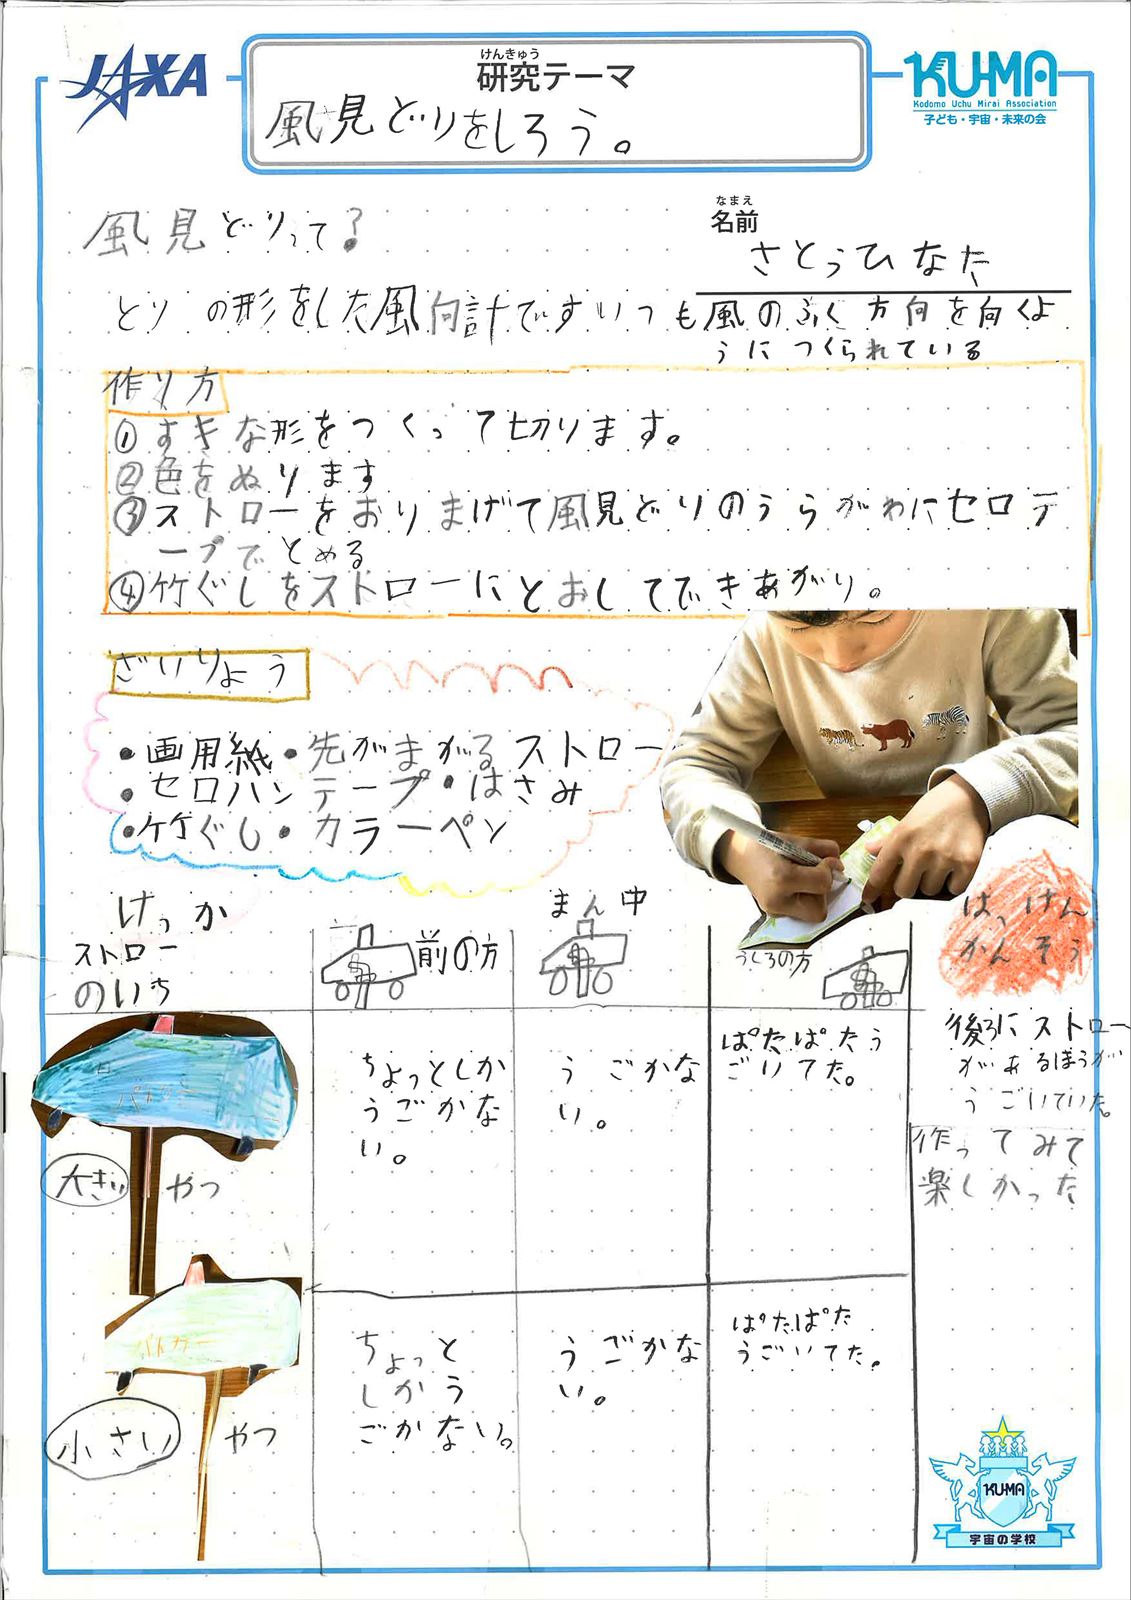 JAXA
けんきゅう
研究テーマ
風見どりをしろう。
KU-MA
Kodomo Uchu Mirai Association
子ども・宇宙・未来の会
なまえ
名前
さとうひなた
風見どりって?
とりの形をした風向計ですいつも風のふく方向を向くよ
うにつくられている
作り方
①すきな形をつくって切ります。
②色をぬります
③ストローをおりまげて風見どりのうらがわにセロテ
ープでとめる
④竹ぐしをストローにとおしてできあがり。
ざいりょう
•画用紙•先がまがるストロー
•セロハンテープ•はさみ
•竹ぐし•カラーペン
けっか
ストロー
のいち
前の方
まん中
うしろの方
はっけん
かんそう
大きい やつ
ちょっとしか
うごかな
い。
うごかな
い。
ぱたぱたう
ごいてた。
後ろにストロー
があるほうが
うごいていた。
作ってみて
楽しかった
小さい やつ
ちょっと
しかう
ごかない。
うごかな
い。
ぱたぱた
うごいてた。
KU-MA
宇宙の学校